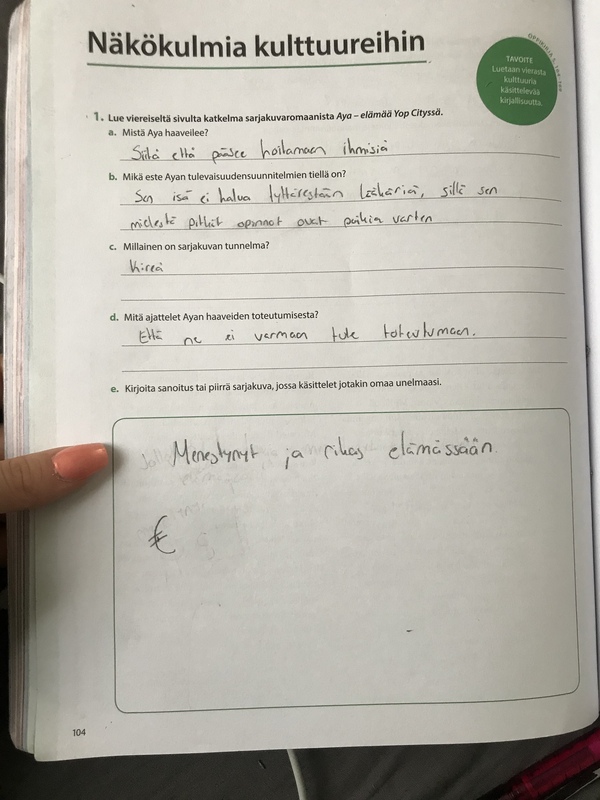 Näkökulmia kulttuureihin
TAVOITE
Luetaan vierasta
kulttuuria
käsittelevää
kirjallisuutta.
1. Lue viereiseltä sivulta katkelma sarjakuvaromaanista Aya – elämää Yop Cityssä.
a. Mistä Aya haaveilee?
Siitä että pääsee hoitamaan ihmisiä
b. Mikä este Ayan tulevaisuudensuunnitelmien tiellä on?
Sen isä ei halua tyttärestään lääkäriä, sillä sen
mielestä pitkät opinnot ovat poikia varten
c. Millainen on sarjakuvan tunnelma?
Kireä
d. Mitä ajattelet Ayan haaveiden toteutumisesta?
Että ne ei varmaan tule toteutumaan.
e. Kirjoita sanoitus tai piirrä sarjakuva, jossa käsittelet jotakin omaa unelmaasi.
Menestynyt ja rikas elämässään
€
104